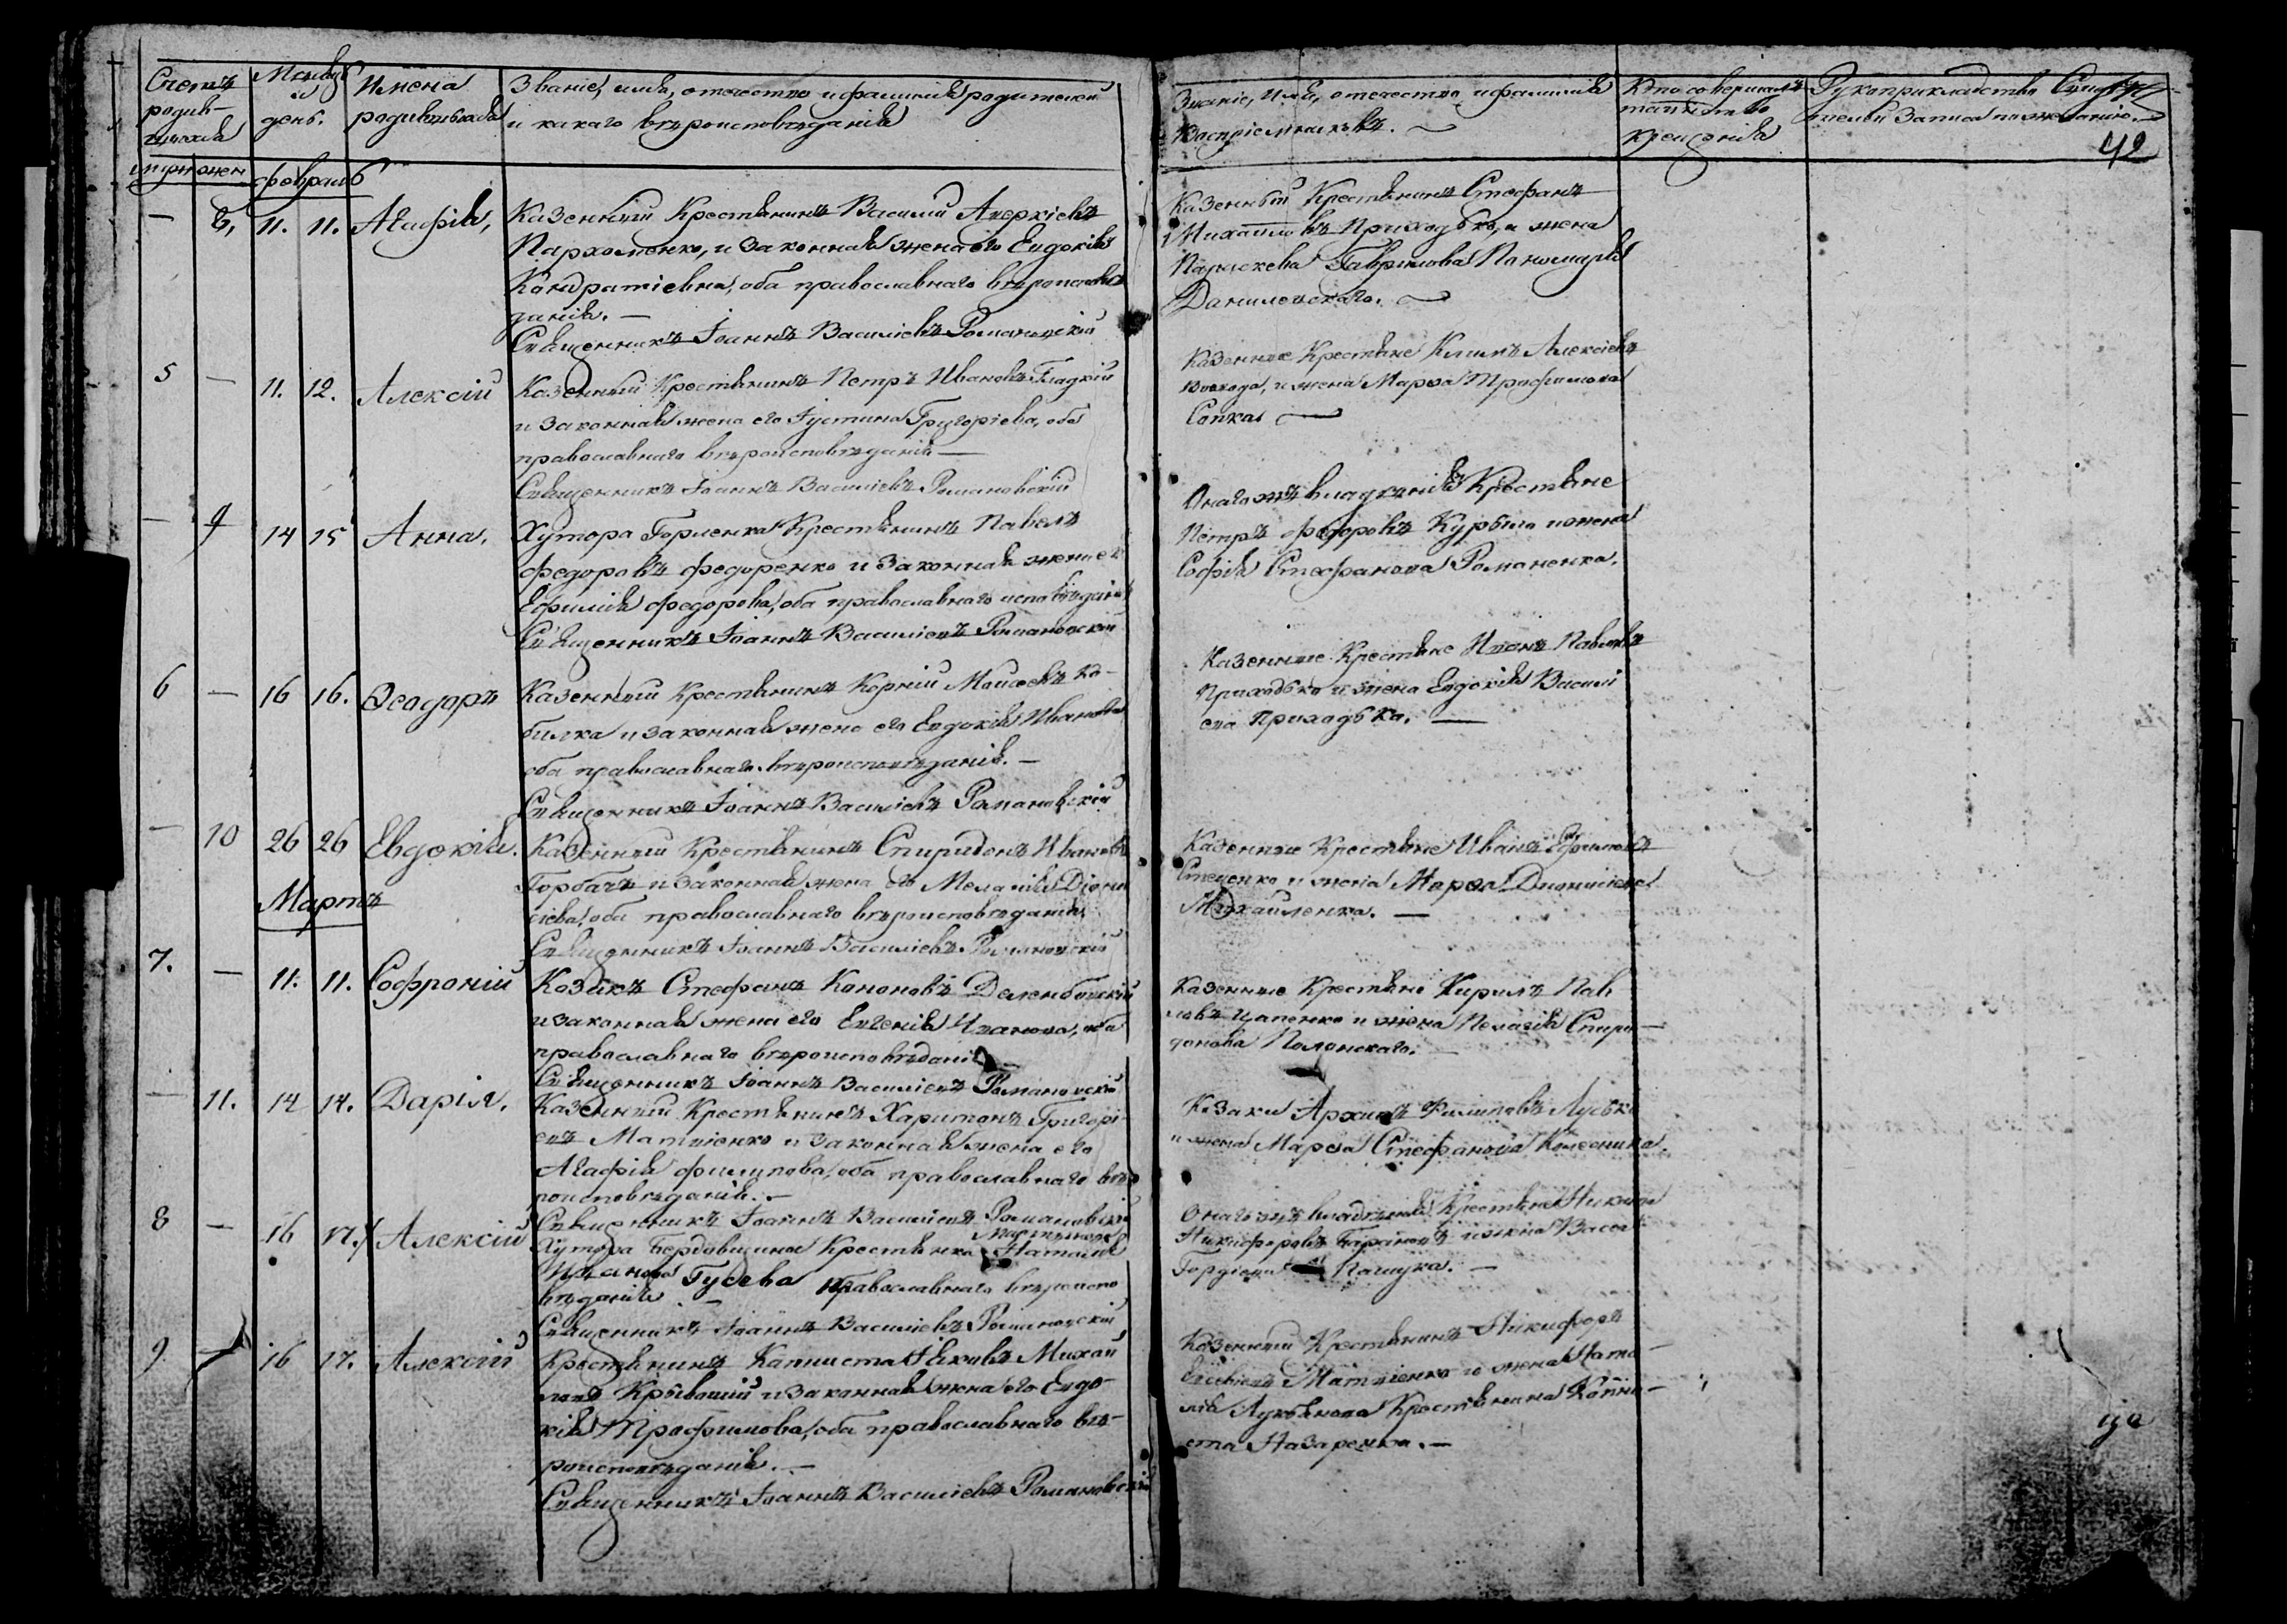 Счетъ родив-шихся
Месяцъ и день.
Имена родившихся
Званіе, имя, отечество и фамилія родителей
и какаго вѣроисповѣданія
Званіе, имя, отечество и фамилія
Воспріемниковъ.
Кто совершалъ
таинство
крещенія
Рукоприкладство Свидѣ-
телей Записи по желанію.
42
муж жен
февраль
— 8, 11. 11. Агафія,
Казенный Крестьянинъ Василій Аверкіевъ
Пархоменко, и законная жена его Евдокія
Кондратіевна, оба православнаго вѣроисповѣ-
данія. —
Священникъ Іоаннъ Василіевъ Романовскій
Казенный Крестьянинъ Стефанъ
Михайловъ Приходько, и жена
Параскева Гаврилова Пономаря
Данилевскаго.
5 — 11. 12. Алексій
Казенный Крестьянинъ Петръ Ивановъ Гладкій
и законная жена его Іустина Григоріева, оба
православнаго вѣроисповѣданія —
Священникъ Іоаннъ Василіевъ Романовскій
Казенные Крестьяне Климъ Алексіевъ
и жена Марѳа Трофимова
— 9 14 15 Анна.
Хутора Горленка Крестьянинъ Павелъ
Федоровъ Федоренко и законная жена е
Ефимія Федорова, оба православнаго исповѣданія
Священникъ Іоаннъ Василіевъ Романовскій
Онагожъ владѣнія Крестьяне
Петръ Федоровъ Курбило и жена
Софія Стефанова Романенка.
6 — 16 16. Ѳеодоръ
Казенный Крестьянинъ Корній Моисеевъ Ко-
билка и законная жена его Евдокія Иванова
оба православнаго вѣроисповѣданія. —
Священникъ Іоаннъ Василіевъ Романовскій
Казенные Крестьяне Павловъ
Приходько и жена Евдокія Василі
ева Приходька. —
— 10 26 26 Евдокія.
Казенный Крестьянинъ Спиридонъ Ивановъ
Горбачъ и законная жена его Меланія Діони
сіева, оба православнаго вѣроисповѣданія
Священникъ Іоаннъ Василіевъ Романовскій
Казенные Крестьяне Иванъ Ефимовъ
Стеценко и жена Марѳа Дионисіева
Михайленка. —
Мартъ
7. — 11. 11. Софроній
Козакъ Стефанъ Кононовъ
и законная жена его Евгенія Иванова, оба
православнаго вѣроисповѣданія
Священникъ Іоаннъ Василіевъ Романовскій
Казенные Крестьяне Кирилъ Пав
ловъ Цапенко и жена Пелагія Спири-
донова Полонскаго.
— 11. 14 14. Дарія.
Казенный Крестьянинъ Харитонъ Григорі-
евъ Матвіенко и законная жена его
Агафія Филипова, оба православнаго вѣ
роисповѣданія. —
Священникъ Іоаннъ Василіевъ Романовскій
Козаки Архипъ Филиповъ
и жена Марѳа Стефанова Колесника.
8 — 16 17. Алексій
Хутора Бердовщины Крестьянка Наталія
Иванова Гусева православнаго вѣроиспо
вѣданія. —
Священникъ Іоаннъ Василіевъ Романовскій
Онагожъ владѣнія Крестьяне
Никифоровъ и жена
Гордіева —
9 — 16 17. Алексій
Крестьянинъ Капниста Яковъ Михай
ловъ Крывошій и законная жена его Евдо-
кія Трофимова, оба православнаго вѣ-
роисповѣданія. —
Священникъ Іоаннъ Василіевъ Романовскій
Казенный Крестьянинъ Никифоръ
Матвіенко и жена Ната-
лія Лукьянова Крестьянина Капни-
ста Назаренка. —